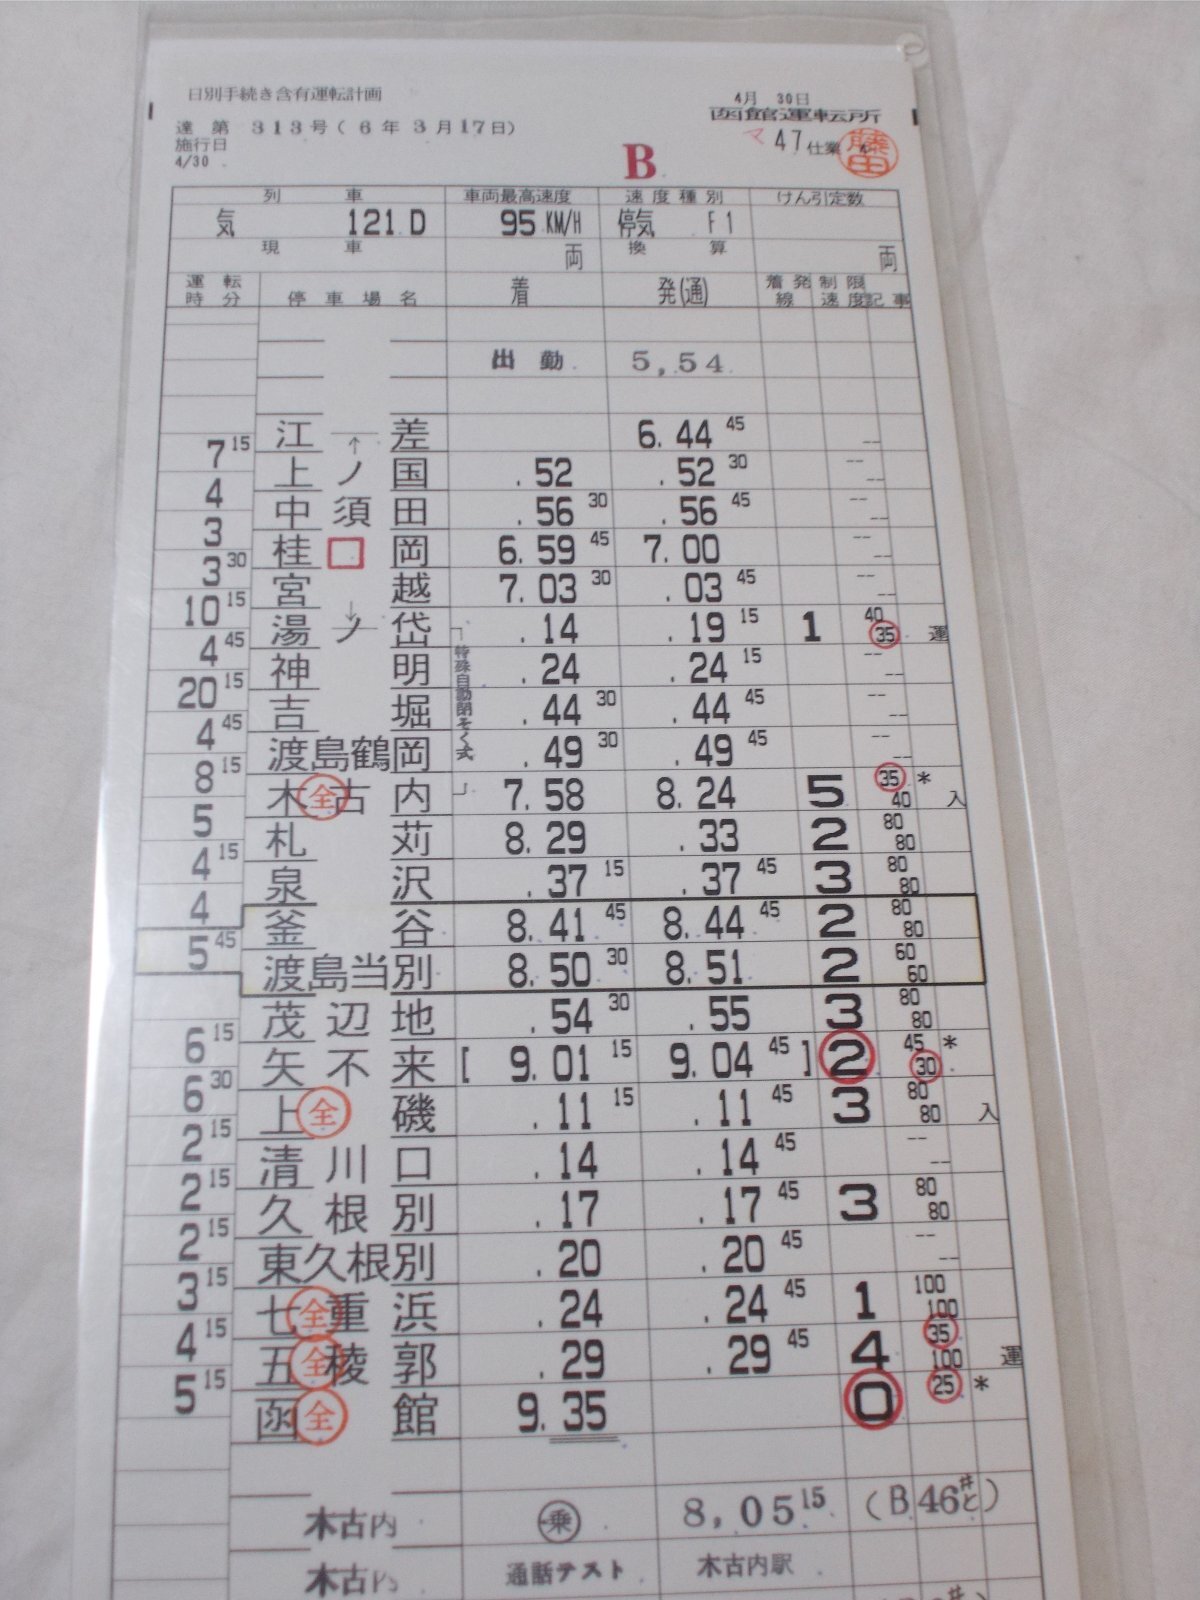 日別手続き含有運転計画
4月 30日
函館運転所
達 第 313号(6年3月17日)
施行日
4/30
B
マ 47仕業
藤田
列 車 車両最高速度 速度種別 けん引定数
気 121D 95KM/H 停気 F1
現 車 両 換 算 両
運転時分 停車場名 着 発(通) 着発線 制限速度 記事
出勤 5,54
江差 6.44 45 --
7 15
上ノ国 .52 .52 30 -- --
4
中須田 .56 30 .56 45 -- --
3
桂岡 6.59 45 7.00 -- --
3 30
宮越 7.03 30 .03 45 -- --
10 15
湯ノ岱 .14 .19 15 1 40 35 運
4 45
特殊自動閉そく式
神明 .24 .24 15 -- --
20 15
吉堀 .44 30 .44 45 -- --
4 45
渡島鶴岡 .49 30 .49 45 -- --
8 15
木全古内 7.58 8.24 5 35 * 40 入
5
札苅 8.29 .33 2 80 80
4 15
泉沢 .37 15 .37 45 3 80 80
4
釜谷 8.41 45 8.44 45 2 80 80
5 45
渡島当別 8.50 30 8.51 2 60 60
茂辺地 .54 30 .55 3 80 80
6 15
矢不来 [ 9.01 15 9.04 45 ] 2 45 * 30
6 30
上全磯 .11 15 .11 45 3 80 80 入
2 15
清川口 .14 .14 45 -- --
2 15
久根別 .17 .17 45 3 80 80
2 15
東久根別 .20 .20 45 -- --
3 15
七全重浜 .24 .24 45 1 100 100
4 15
五全稜郭 .29 .29 45 4 35 100 運
5 15
函全館 9.35 0 25 *
木古内 乗 8,05 15 (B46#と)
木古内 通話テスト 木古内駅